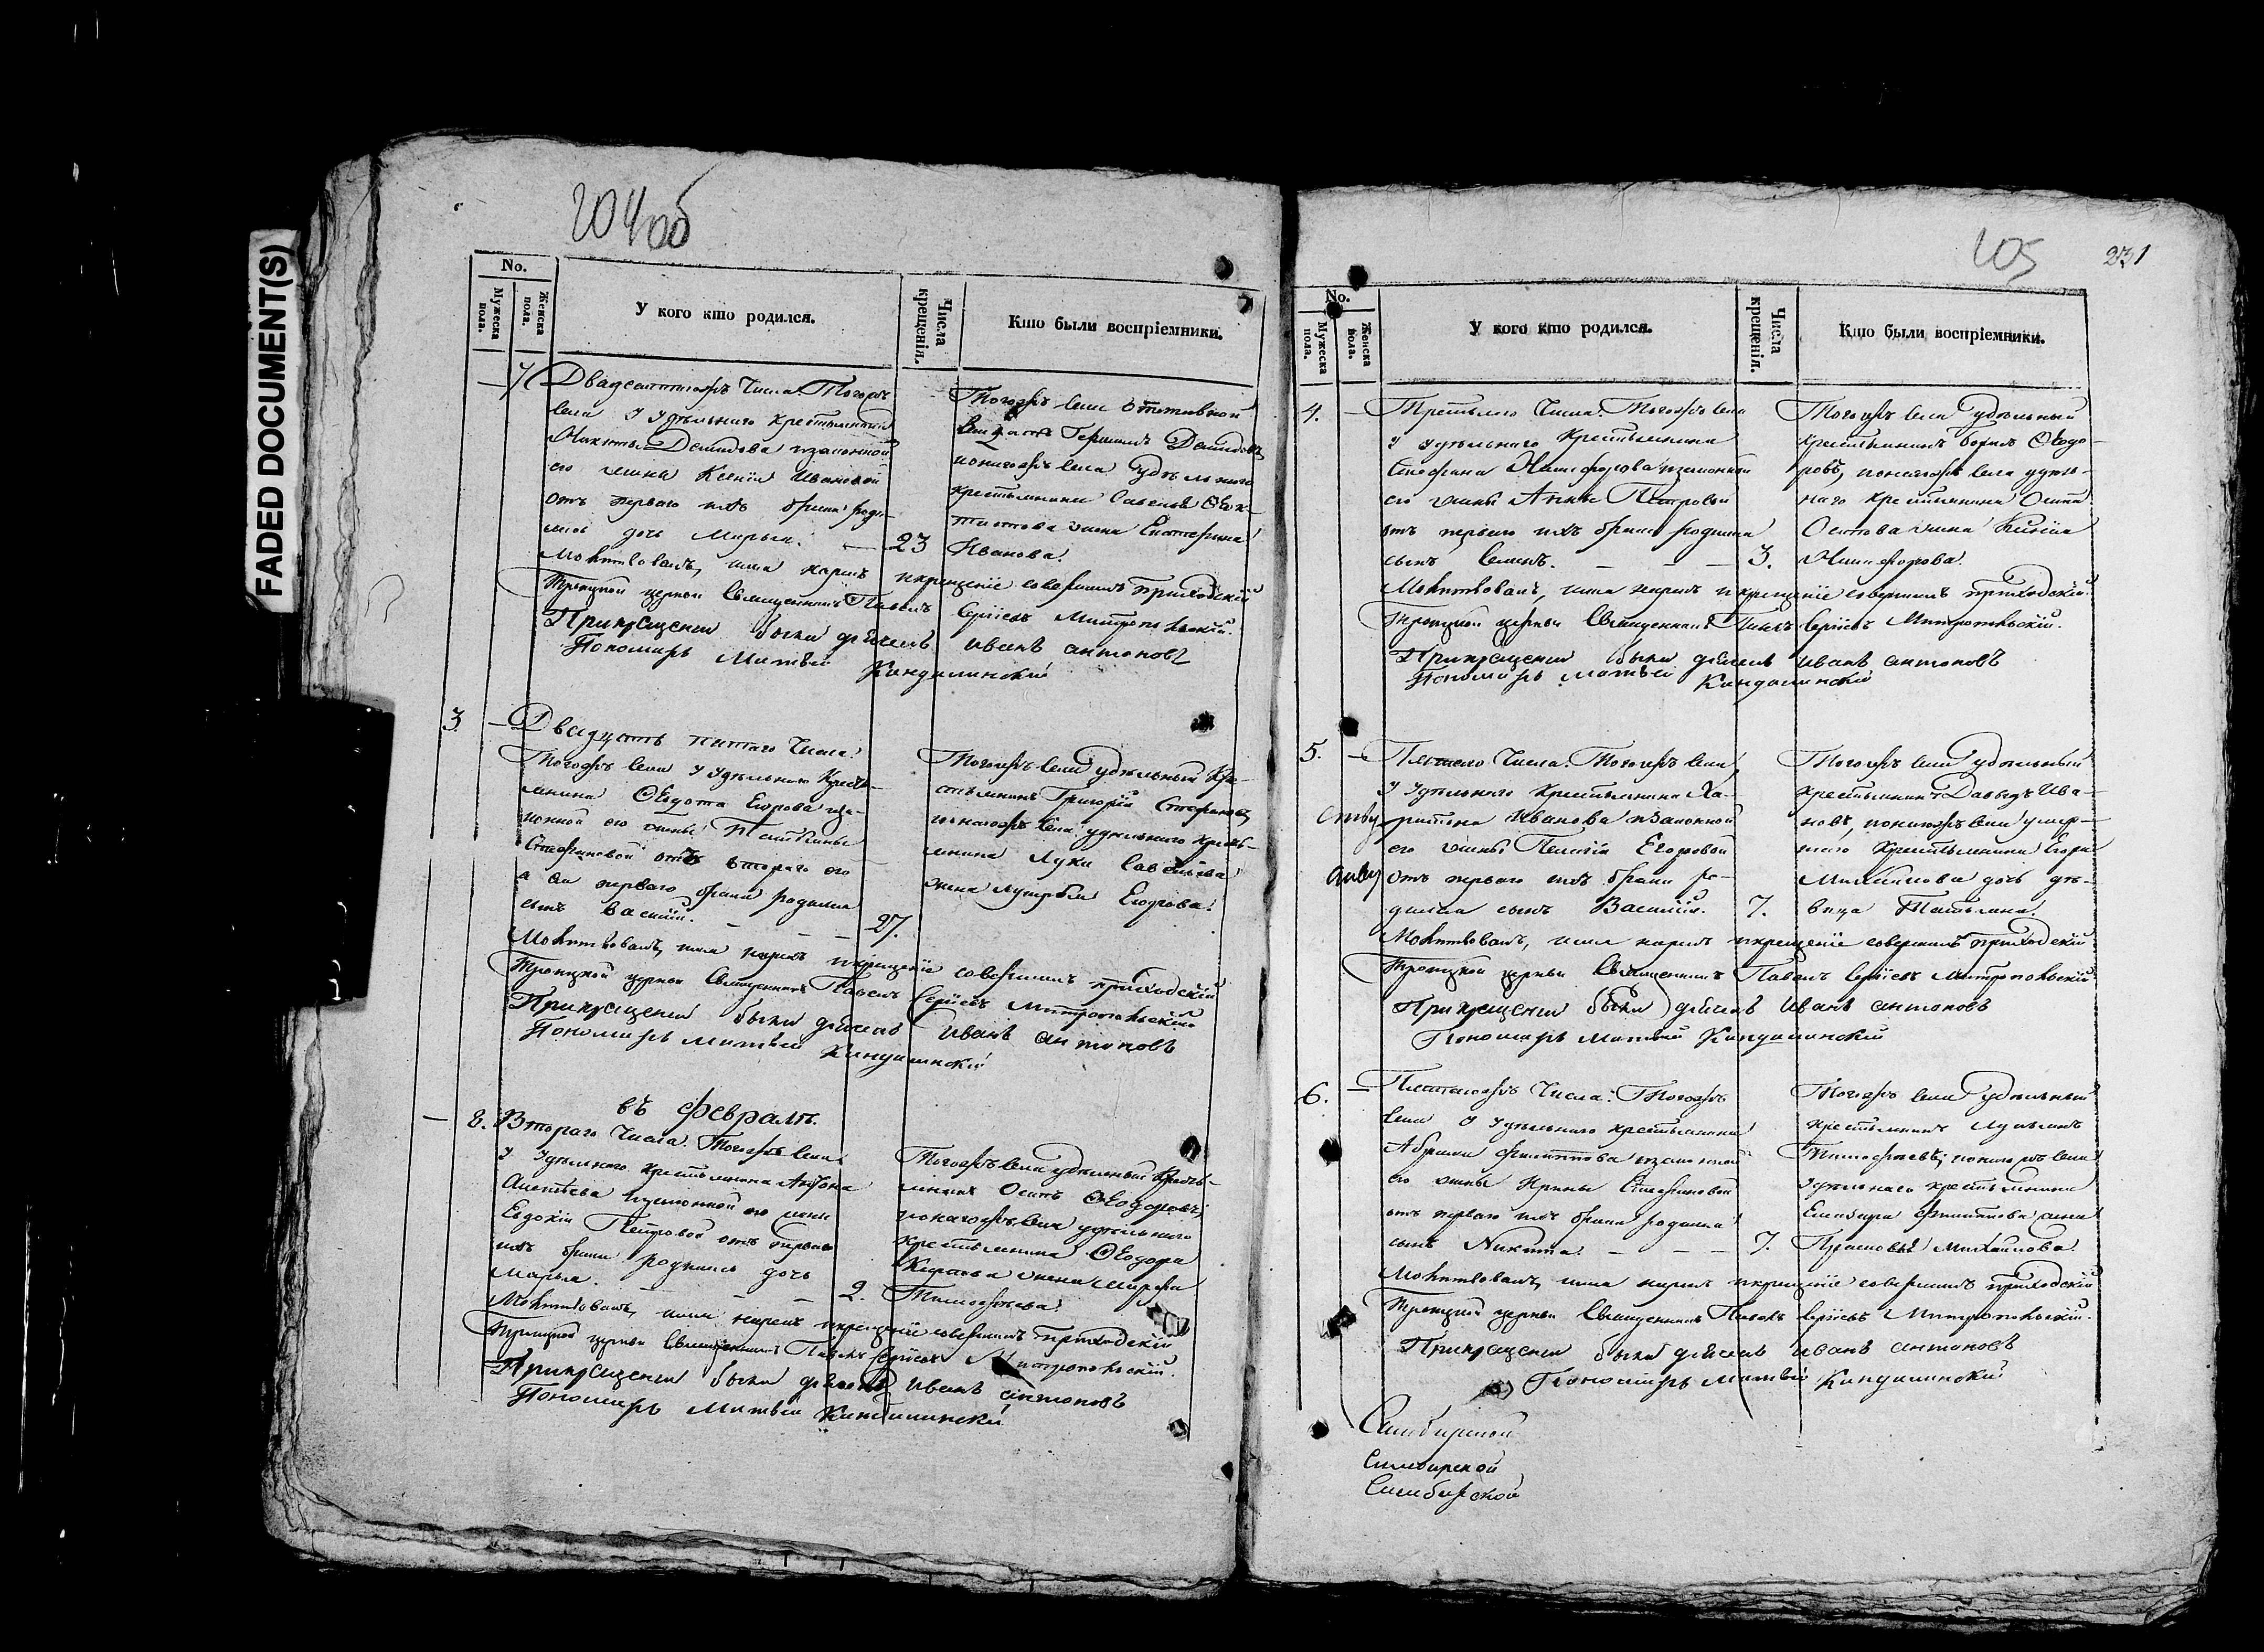 FADED DOCUMENT(S)
204об
No.
Мужеска пола.
Женска пола.
У кого кто родился.
Числа крещенія.
Кто были воспріемники.
7
Двадесятаго Числа. Тогожъ
села У Удѣльнаго крестьянина
Никиты Демидова изаконной
его жены Ксеніи Ивановой
отъ перваго ихъ брака роди-
лась дочь Марья. — 23
Тогожъ села отставной
солдатъ Герасимъ Демидовъ
итогожъ села Удѣльнаго
крестьянина Савелья Ѳеок-
тистова жена Екатерина
Иванова.
Молитвовалъ, имя нарекъ икрещеніе совершилъ приходскій
Троицкой церкви Священникъ Павелъ Сергіевъ Митропольскій.
Прикрещеніи были дьячекъ иванъ антоновъ
Пономарь Матвѣй Кандалинскій
3. —
Двадцать пятаго Числа.
Тогожъ села У Удѣльнаго Кресть-
янина Ѳедота Егорова иза-
конной его жены Татьяны
Стефановой отъ втораго его
а ея перваго брака родился
сынъ Василій. — — — 27.
Тогожъ села удѣльный Кре-
стьянинъ Григорій Стефановъ,
итогожъ села удѣльнаго кресть-
янина Луки Савельева
жена Лукерья Егорова.
Молитвовалъ, имя нарекъ икрещеніе совершилъ приходскій
Троицкой церкви Священникъ Павелъ Сергіевъ Митропольскій
Прикрещеніи были дьячекъ иванъ антоновъ
Пономарь матвѣй Кандалинскій
въ февралѣ.
— 8.
Втораго Числа. Тогожъ села
У Удѣльнаго крестьянина Антона
Алексѣева изаконной его жены
Евдокіи Петровой отъ перваго
ихъ брака родилась дочь
Марья. — — 2.
Тогожъ села удѣльный Кресть-
янинъ Осипъ Ѳеодоровъ,
итогожъ села удѣльнаго
крестьянина Ѳеодора
жена Марфа
Тимофѣева.
Молитвовалъ, имя нарекъ икрещеніе совершилъ приходскій
Троицкой церкви Священникъ Павелъ Сергіевъ Митропольскій.
Прикрещеніи были дьячекъ иванъ антоновъ
Пономарь Матвѣй Кандалинскій
205
231
No.
Мужеска пола.
Женска пола.
У кого кто родился.
Числа крещенія.
Кто были воспріемники.
4. —
Третьяго Числа. Тогожъ села
У Удѣльнаго Крестьянина
Стефана Никифорова изаконной
его жены Анны Петровой
отъ перваго ихъ брака родился
сынъ Семенъ. — — — 3.
Тогожъ села Удѣльный
крестьянинъ Борисъ Ѳеодо-
ровъ, итогожъ села удѣль-
наго крестьянина Осипа
жена Ксенія
Никифорова.
Молитвовалъ, имя нарекъ икрещеніе совершилъ приходскій
Троицкой церкви Священникъ Павелъ Сергіевъ Митропольскій.
Прикрещеніи были дьячекъ иванъ антоновъ
Пономарь матвѣй Кандалинскій
5. —
Пятаго Числа. Тогожъ села,
У Удѣльнаго Крестьянина Ха-
ритона Иванова изаконной
его жены Пелагіи Егоровой
отъ перваго ихъ брака ро-
дился сынъ Василій. 7.
Тогожъ села Удѣльный
крестьянинъ Давыдъ Ива-
новъ, итогожъ села умер-
шаго Крестьянина Егора
Михайлова дочь дѣ-
вица Татьяна.
Молитвовалъ, имя нарекъ икрещеніе совершилъ приходскій
Троицкой церкви Священникъ Павелъ Сергіевъ Митропольскій.
Прикрещеніи были дьячекъ Иванъ антоновъ
Пономарь Матвѣй Кандалинскій
6. —
Пятагожъ Числа. Тогожъ
села У Удѣльнаго крестьянина
Абрама Филиппова изаконной
его жены Ирины Стефановой
отъ перваго ихъ брака родился
сынъ Никита. — — — 7.
Тогожъ села Удѣльный
крестьянинъ Лукьянъ
Тимофѣевъ, итогожъ села
Удѣльнаго крестьянина
Елизара Филиппова жена
Прасковья Михайлова.
Молитвовалъ, имя нарекъ икрещеніе совершилъ приходскій
Троицкой церкви Священникъ Павелъ Сергіевъ Митропольскій.
Прикрещеніи были дьячекъ иванъ антоновъ
Пономарь Матвѣй Кандалинскій
Симбирской
Симбирской
Симбирской